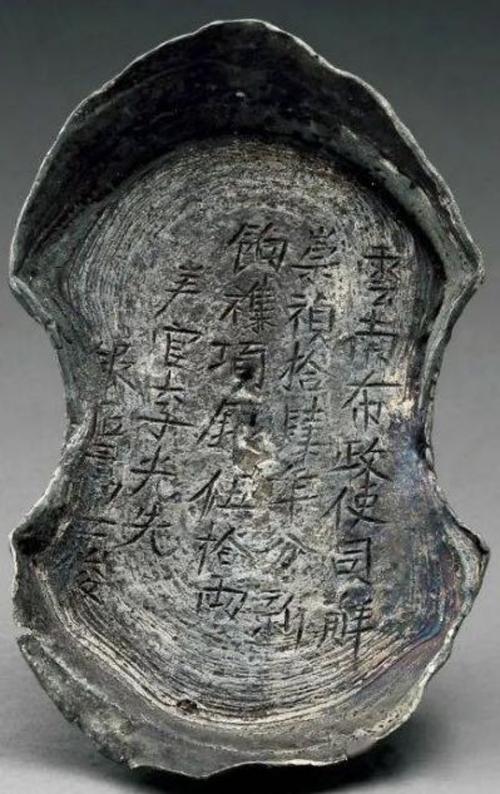 雲南布政使司解
崇禎拾肆年分新
餉雜項銀伍拾兩
差官李先先
銀匠